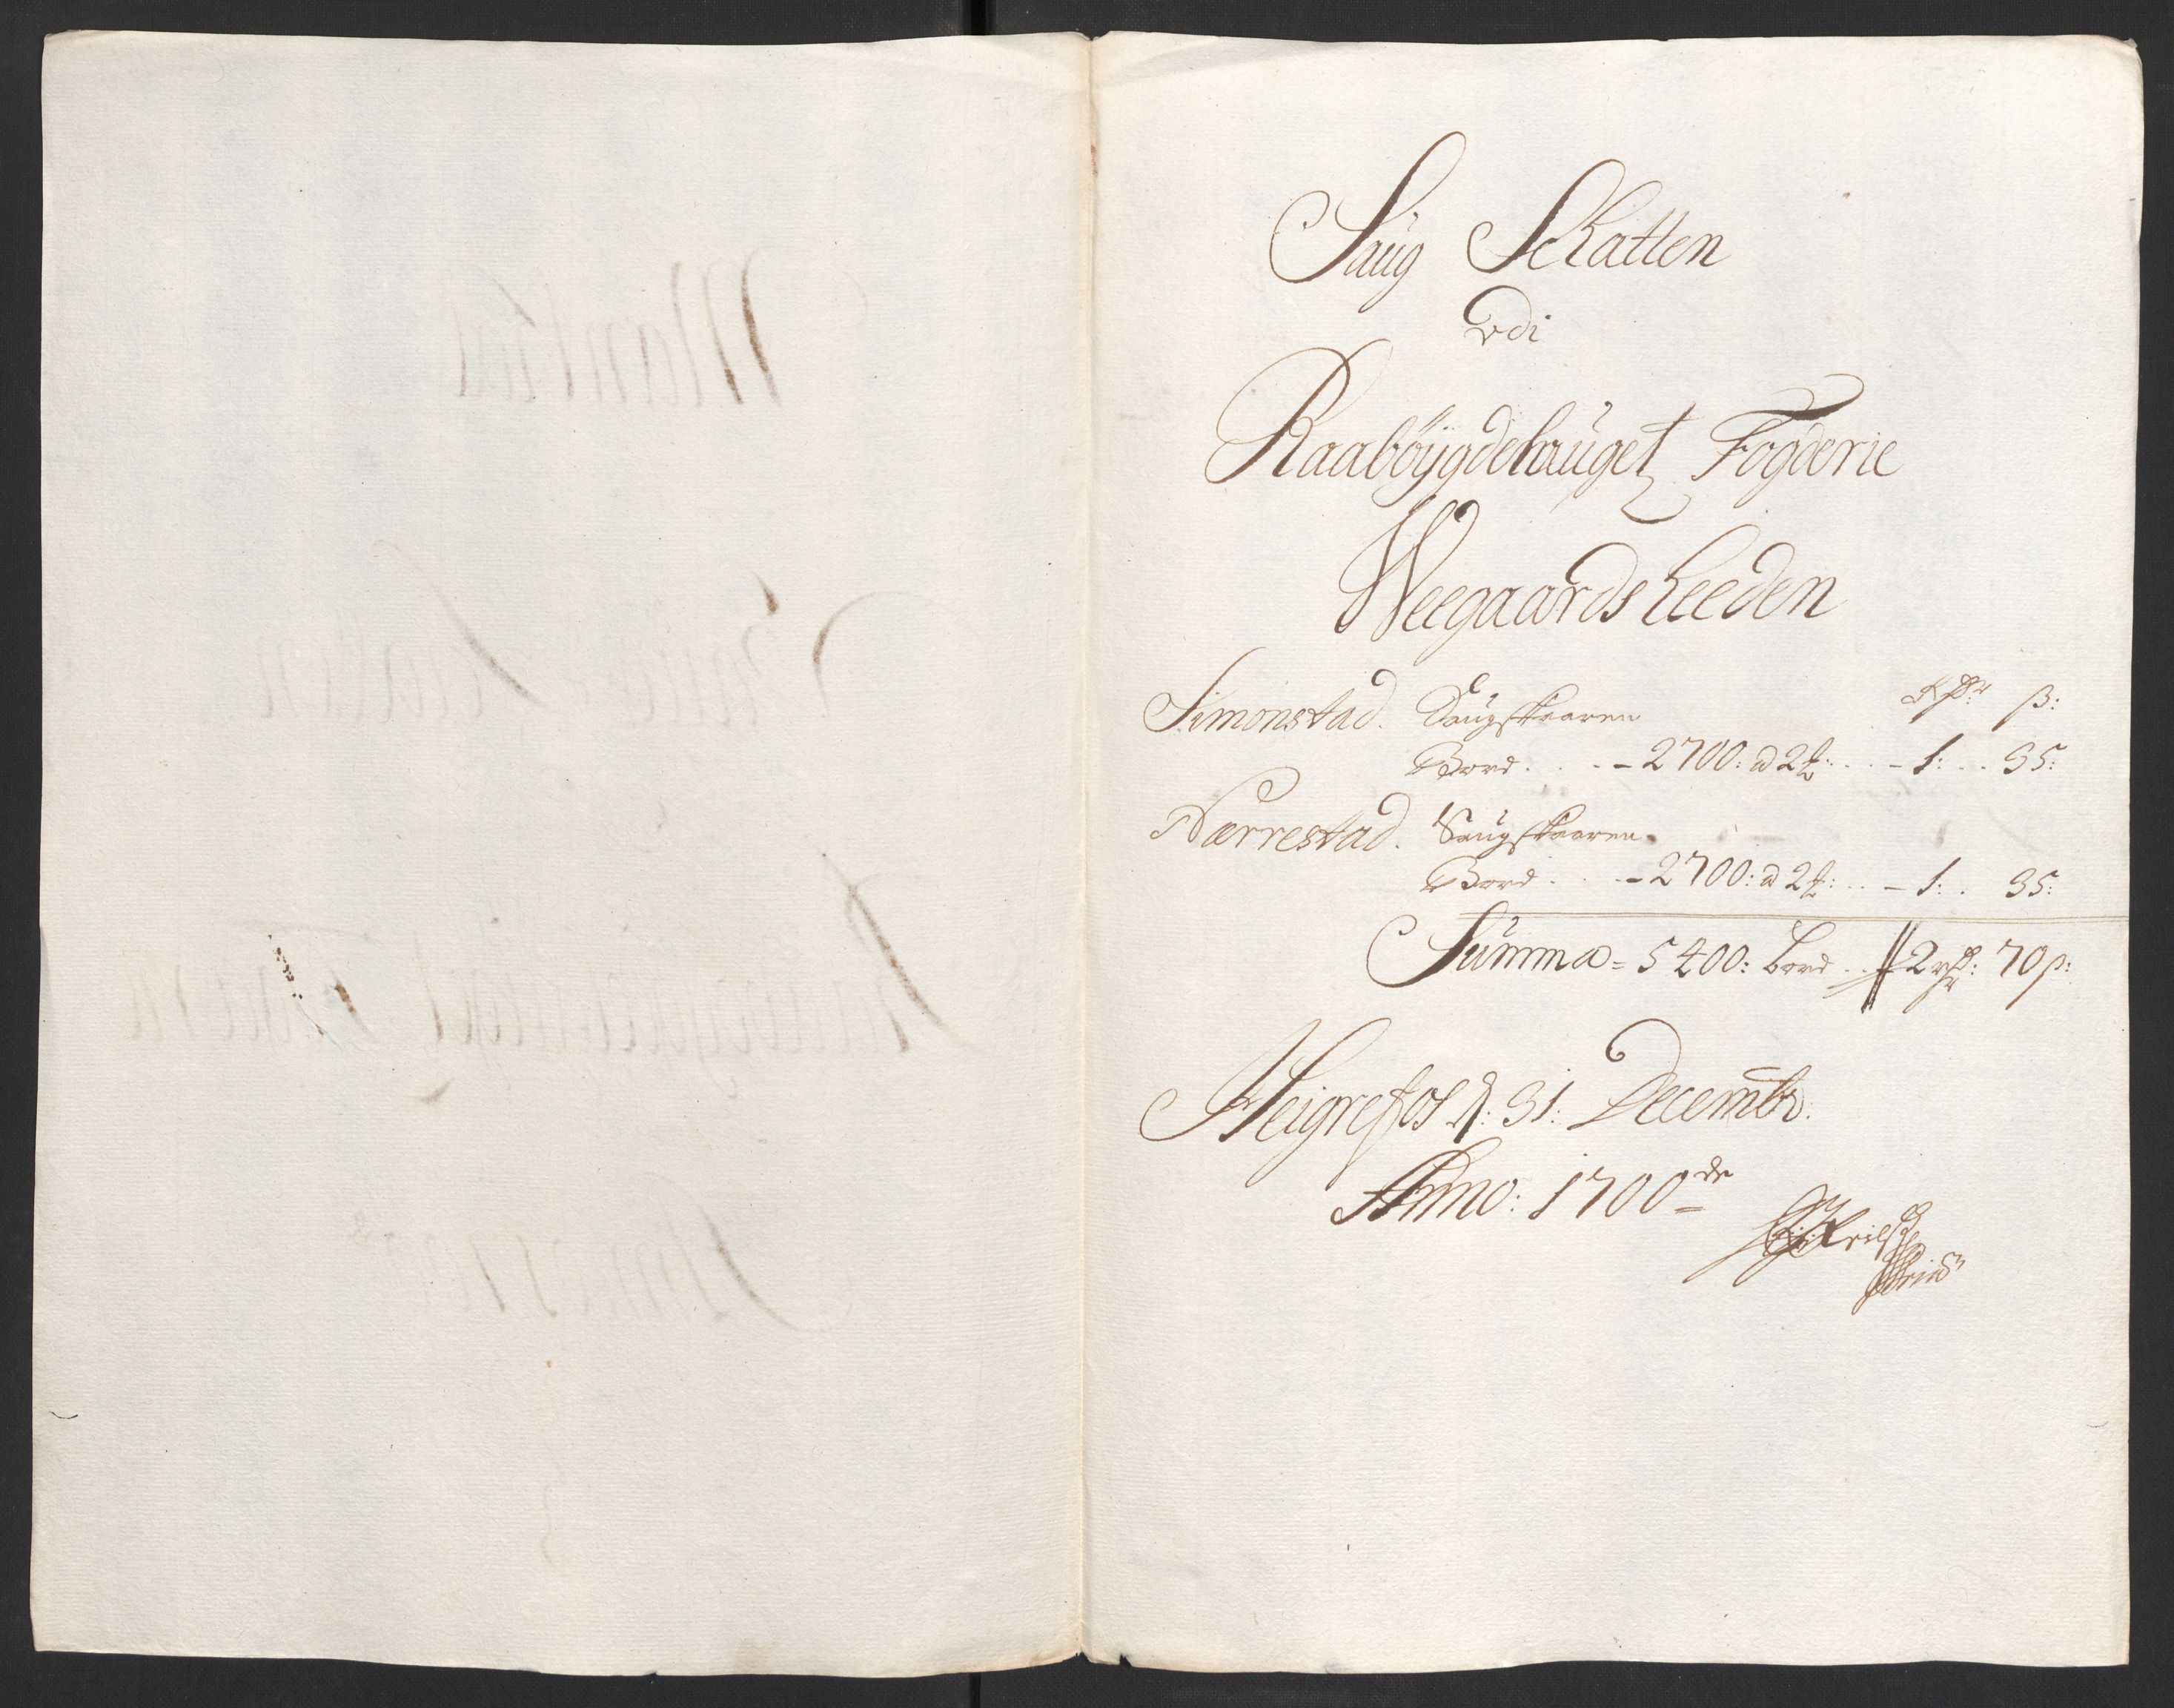 Saug Schatten
udi
Raabøygdelauget Fogderie
Weegaards heeden
Rdr ß:
Simonstad. Saugskaaren
Bord . . . - 2700: a 2 ß: . . . - 1: . . 35:
Nærrestad. Saugskaaren
Bord . . . - 2700: a 2 ß: . . - 1: . 35:
Summa = 5400: bord . . 2 rdr: 70 ß:
Heigrefos d: 31: Decembr:
Anno: 1700 de